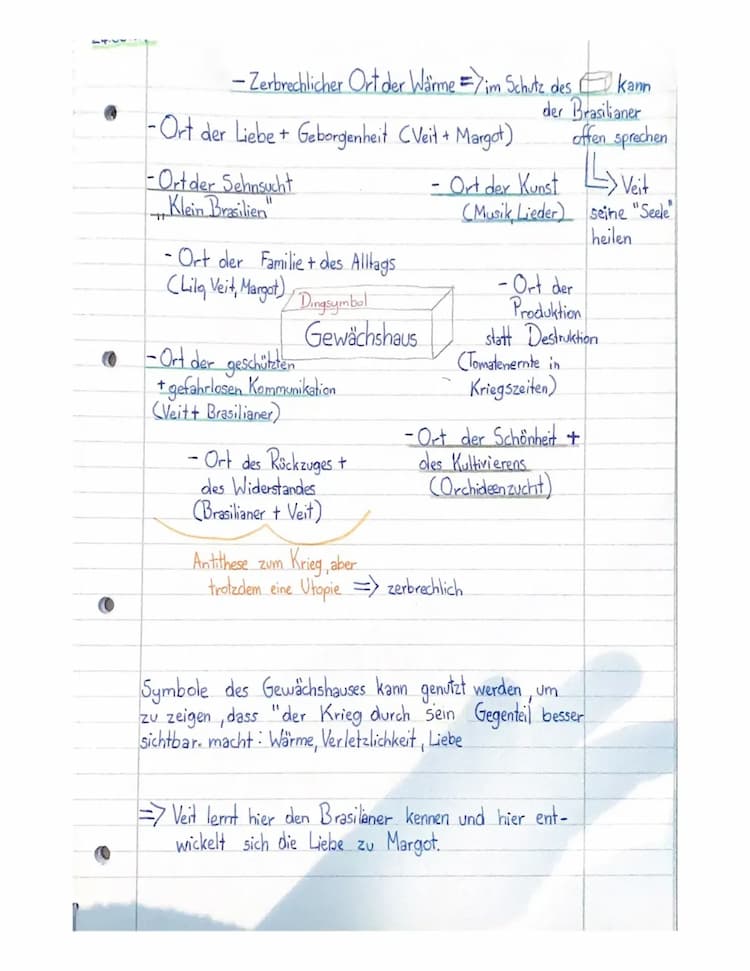 - Zerbrechlicher Ort der Wärme => im Schutz des kann
der Brasilianer
offen sprechen
- Ort der Liebe + Geborgenheit (Veit + Margot)
- Ort der Sehnsucht
„Klein Brasilien"
- Ort der Kunst
(Musik, Lieder)
Veit
seine "Seele"
heilen
- Ort der Familie + des Alltags
(Lila, Veit, Margot)
- Ort der
Produktion
statt Destruktion
(Tomatenernte in
Kriegszeiten)
Dingsymbol
Gewächshaus
- Ort der geschützten
+ gefahrlosen Kommunikation
(Veit + Brasilianer)
- Ort der Schönheit +
des Kultivierens
(Orchideenzucht)
- Ort des Rückzuges +
des Widerstandes
(Brasilianer + Veit)
Antithese zum Krieg, aber
trotzdem eine Utopie => zerbrechlich
Symbole des Gewächshauses kann genutzt werden, um
zu zeigen, dass "der Krieg durch sein Gegenteil besser
sichtbar. macht: Wärme, Verletzlichkeit, Liebe
=> Veit lernt hier den Brasilaner kennen und hier ent-
wickelt sich die Liebe zu Margot.